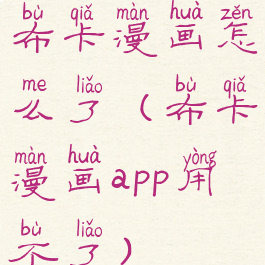 bù qiǎ màn huà zěn
布卡漫画怎
me liǎo bù qiǎ
么了（布卡
màn huà yòng
漫画app用
bù liǎo
不了）